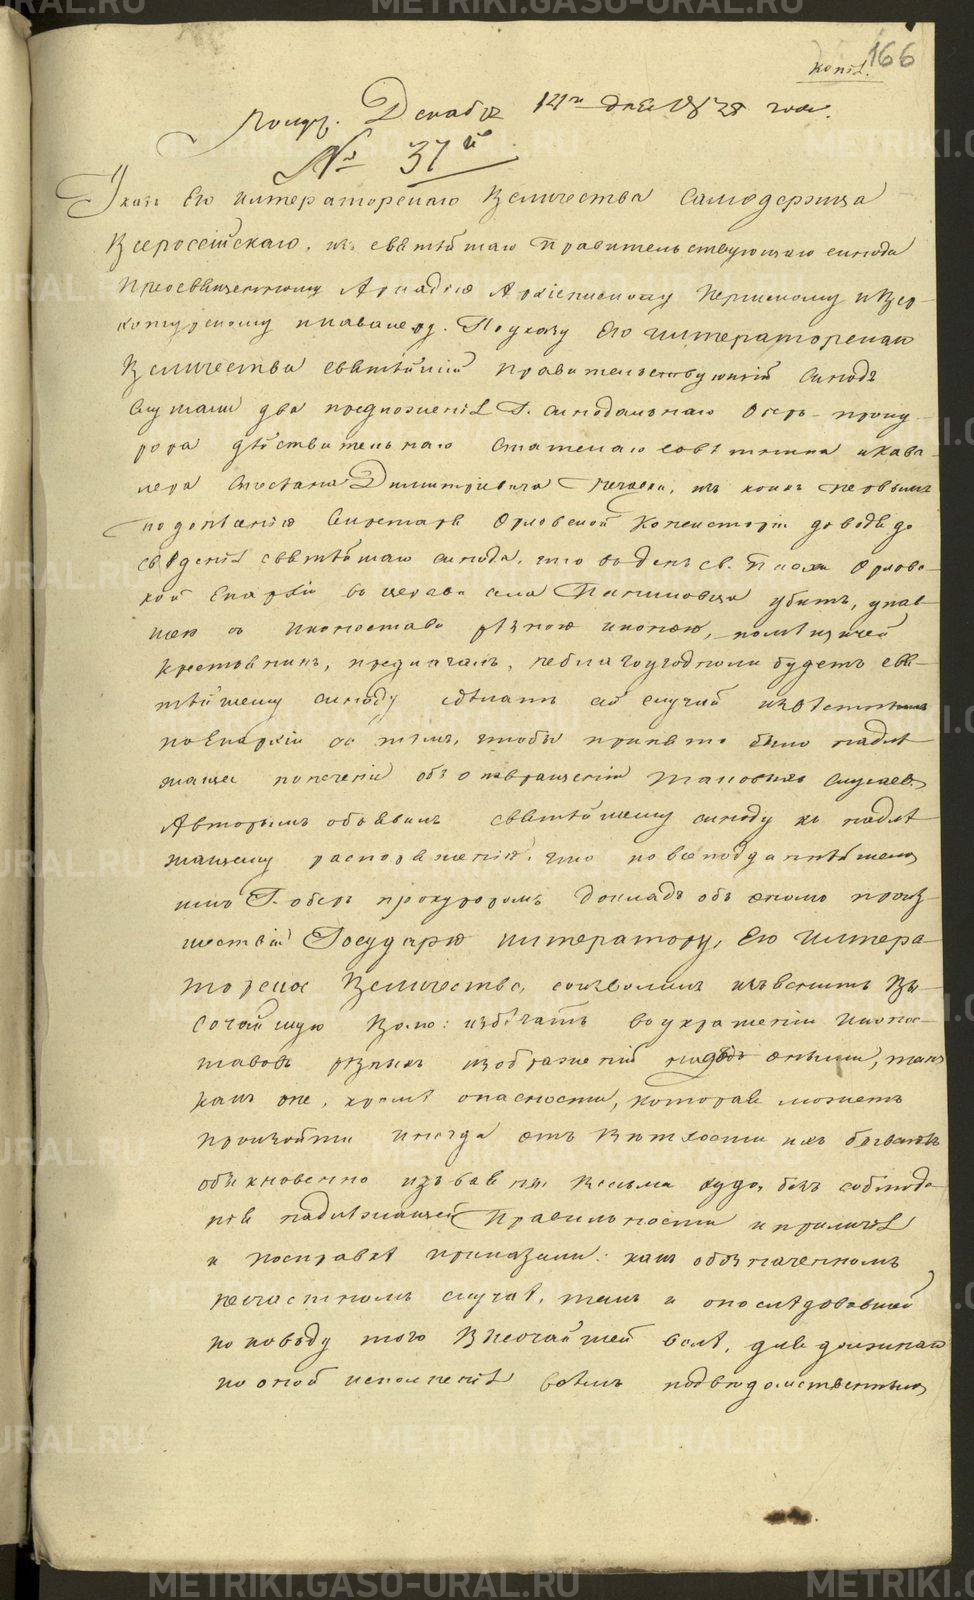 166
Копія.
Получ. Декабря 14го дня 1838 года.
№ 37й
Указъ Его Императорскаго Величества Самодержца
Всероссійскаго, изъ Святѣйшаго Правительствующаго Синода
Преосвященному Аркадію Архіепископу Пермскому и Вер-
хотурскому и Кавалеру. По указу Его Императорскаго
Величества Святѣйшій Правительствующій Синодъ
Слушали два предложенія Г. Синодальнаго Оберъ-Проку-
рора Дѣйствительнаго Статскаго Совѣтника и Кава-
лера Степана Димитріевича Нечаева, изъ коихъ первымъ
по донесенію Секретаря Орловской Консисторіи доводя до
свѣденія Святѣйшаго Синода, что въ день св. Пасхи Орловс-
кой Епархіи въ церкви села убитъ, упав-
шею съ Иконостаса рѣзною иконою, помѣщичей
крестьянинъ, предлагалъ, не благоугодноли будетъ Свя-
тѣйшему Синоду сдѣлать сей случай извѣстнымъ
по Епархіи съ тѣмъ, чтобы принято было надле-
жащее попеченіе объ отвращеніи таковыхъ Случаевъ
А вторымъ объявилъ Святѣйшему Синоду къ надле-
жащему распоряженію, что по всеподданнѣйшем
Г. Оберъ Прокуроромъ докладѣ объ ономъ произ-
шествіи Государю Императору, Его Импера-
торское Величество, соизволилъ изъявить Вы-
сочайшую Волю: избѣгать въ украшеніи Иконос-
тасовъ рѣзныхъ изображеній надъ оными, такъ
какъ оне, кромѣ опасности, которая можетъ
произойти иногда отъ ветхости ихъ бываютъ
обыкновенно изъваяны весьма худо, безъ соблюде-
нія надлежащей Правильности и приличія
и По справкѣ приказали: какъ обозначенномъ
несчастномъ случаѣ, такъ и о послѣдовавшей
по поводу того Высочайшей волѣ, для должнаго
по оной исполненія всѣмъ подвѣдомственнымъ
METRIKI.GASO-URAL.RU